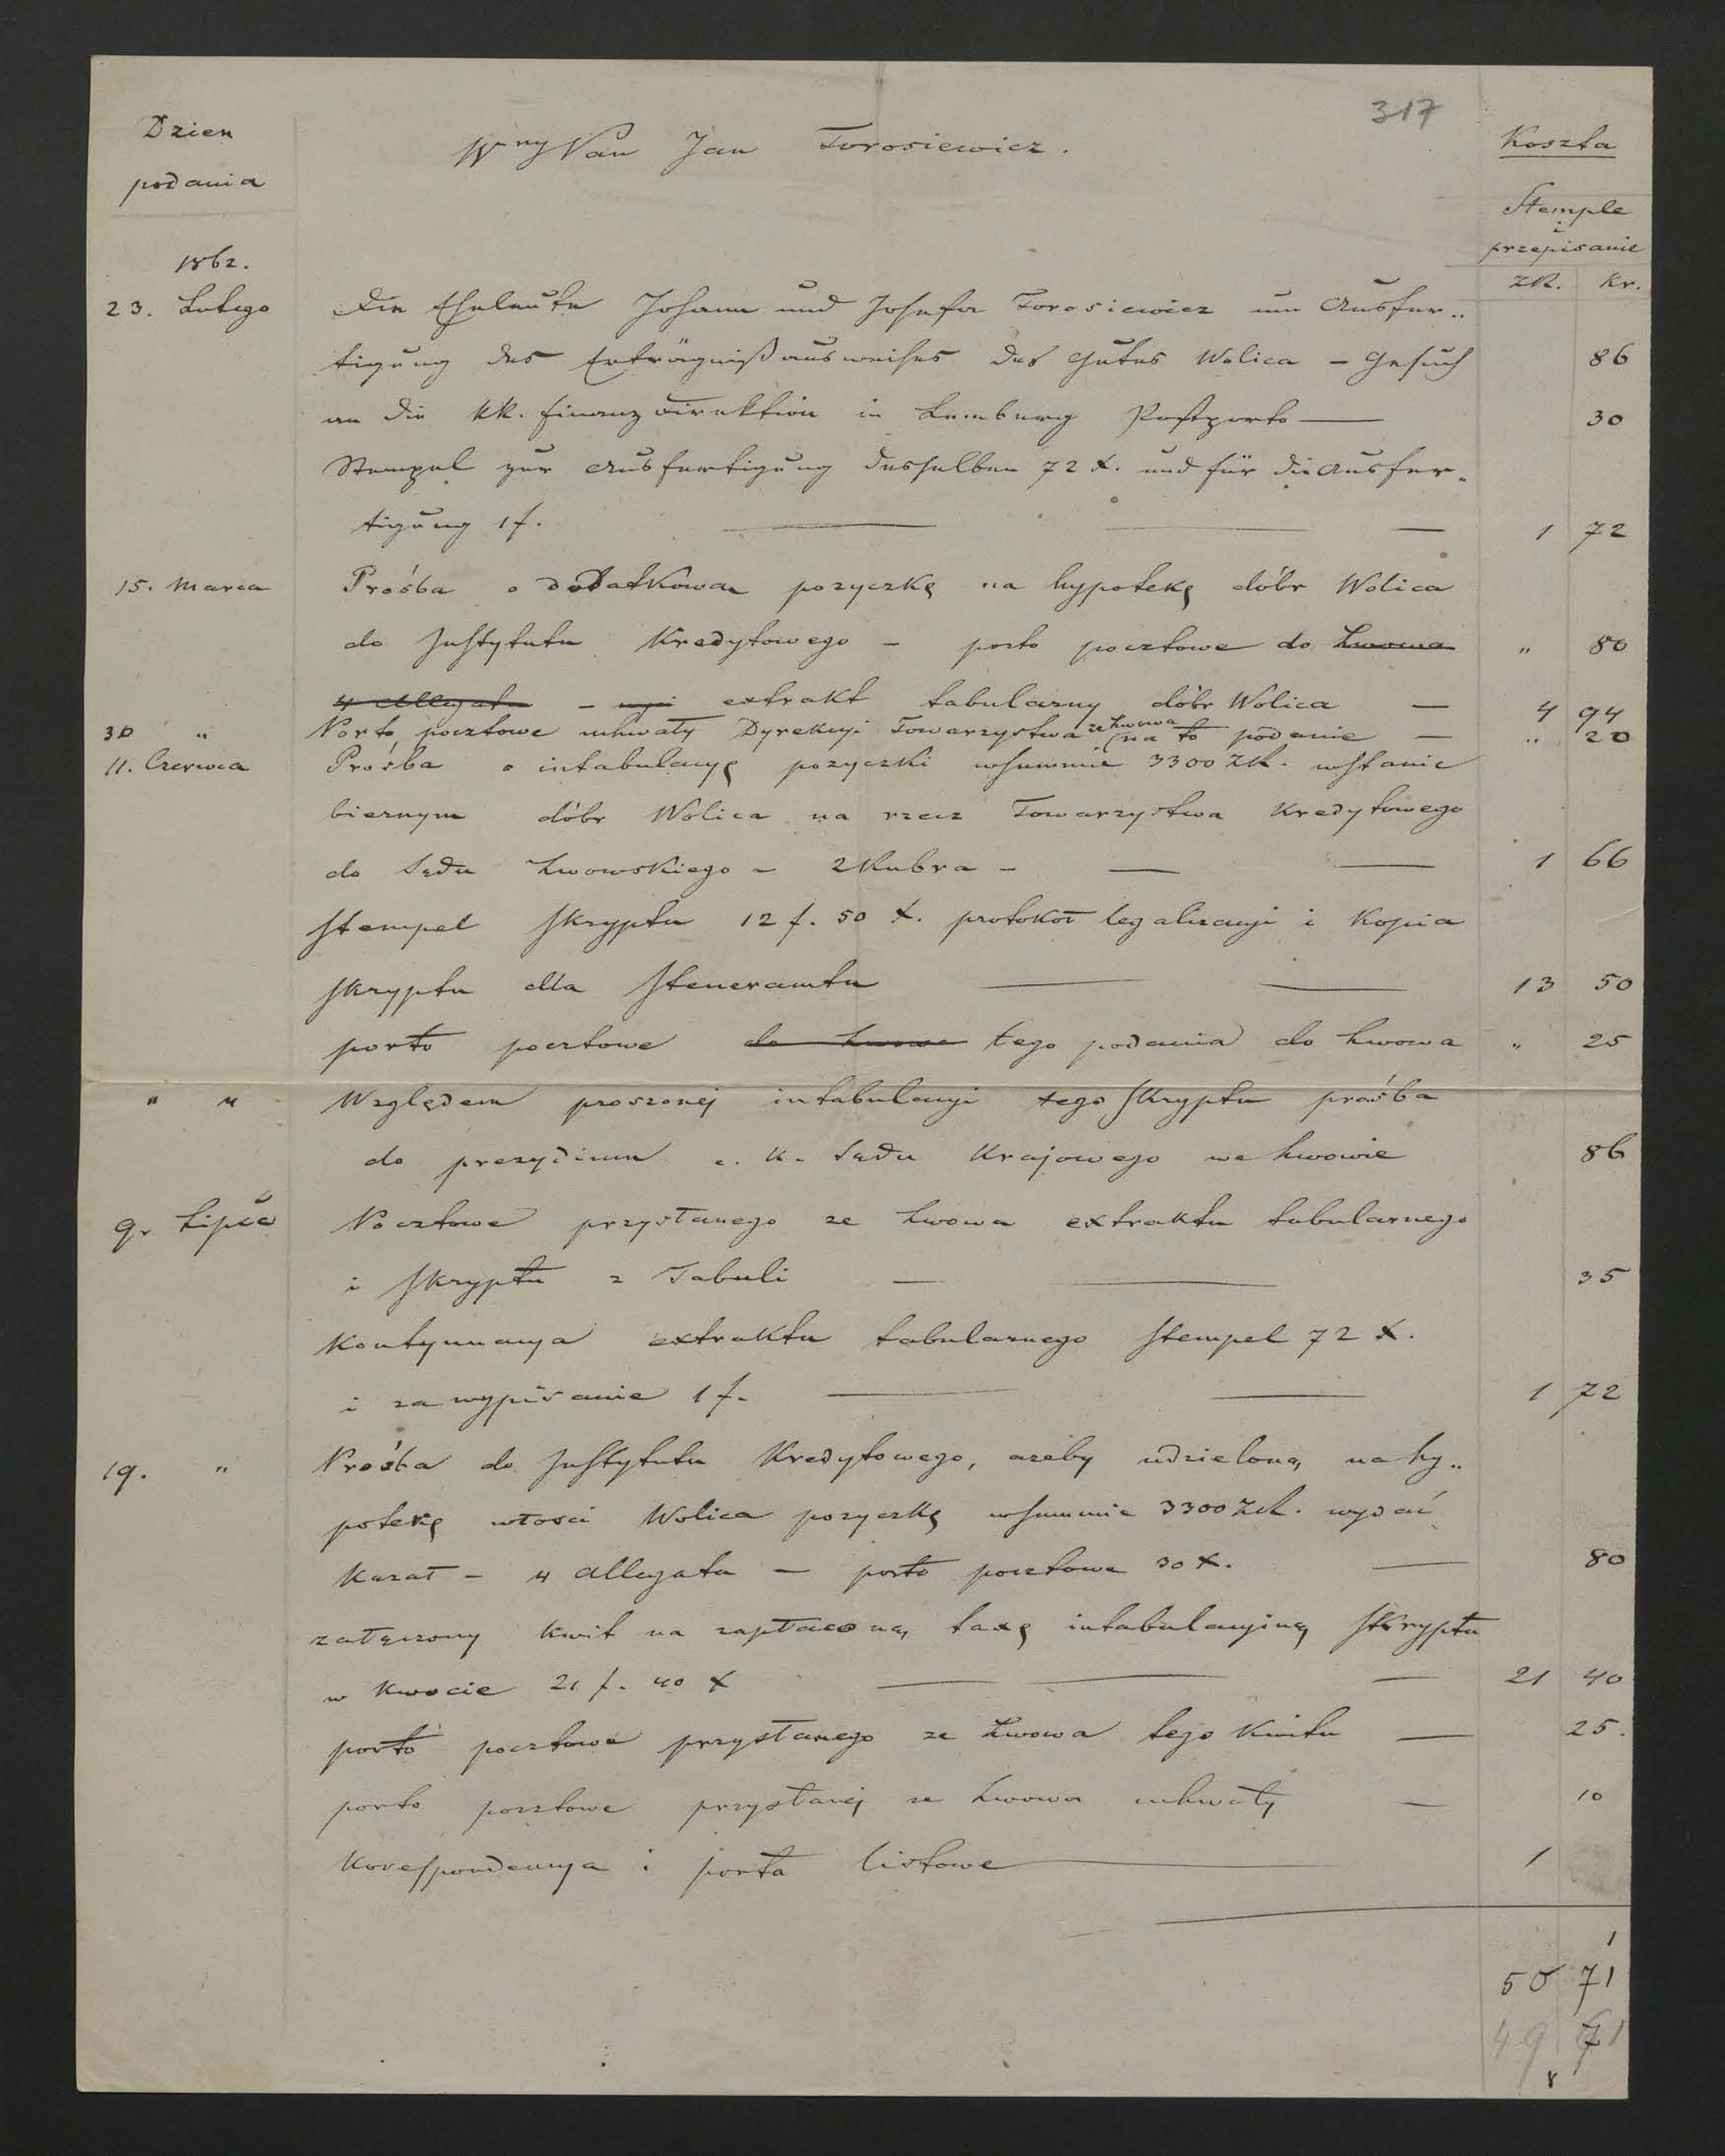 317
Dzien
podania
Wny Pan Jan Torosiewicz.
Koszta
Stemple
i
przepisanie
ZR. Kr.
1862.
23. Lutego Die Eheleute Johann und Josefa Torosiewicz um Ausfer„
tigung des Erträgnißausweises des Gutes Wolica – Gesuch 86
an die kk. Finanz Direktion in Lemberg Postporto — 30
Stempel zur Ausfertigung desselben 72 x. und für die Ausfer„
tigung 1 f. — — — 1 72
15. Marca Prośba o dodatkową pozyczkę na hypotekę dóbr Wolica
do Instytutu Kredytowego – porto pocztowe do Lwowa „ 80
4 Allegata – extrakt tabularny dóbr Wolica — 4 94
30 „ Porto pocztowe uchwały Dyrekcyi Towarzystwa ze Lwowa (na to podanie — „ 20
11. Czerwca Prośba o intabulacyę pozyczki wsummie 3300 ZR. wstanie
biernym dóbr Wolica na rzecz Towarzystwa Kredytowego
do Sądu Lwowskiego – 2 Rubra – — — 1 66
Stempel Skryptu 12 f. 50 x. protokoł legalizacyi i Kopia
Skryptu dla Steueramtu — — 13 50
porto pocztowe do Lwowa tego podania do Lwowa „ 25
„ „ Względem proszonej intabulacyi tego Skryptu prośba
do prezydium c. k. Sądu Krajowego we Lwowie 86
9. Lipca Pocztowe przysłanego ze Lwowa extraktu tabularnego
i Skryptu z Tabuli — — 35
Kontynuacya extraktu tabularnego Stempel 72 x.
i za wypisanie 1 f. — — 1 72
19. „ Prośba do Instytutu Kredytowego, azeby udzieloną na hy„
potekę włosci Wolica pozyczkę wsummie 3300 ZR. wydać
Kazał – 4 Allegata – porto pocztowe 30 x. — 80
załączony kwit na zapłaconą taxę intabulacyiną Skryptu
w Kwocie 21 f. 40 x — — — 21 40
porto pocztowe przysłanego ze Lwowa tego Kwitu — 25.
porto pocztowe przysłanej ze Lwowa uchwały — 10
Korespondencya i porta listowe — 1
1
50 71
49 71